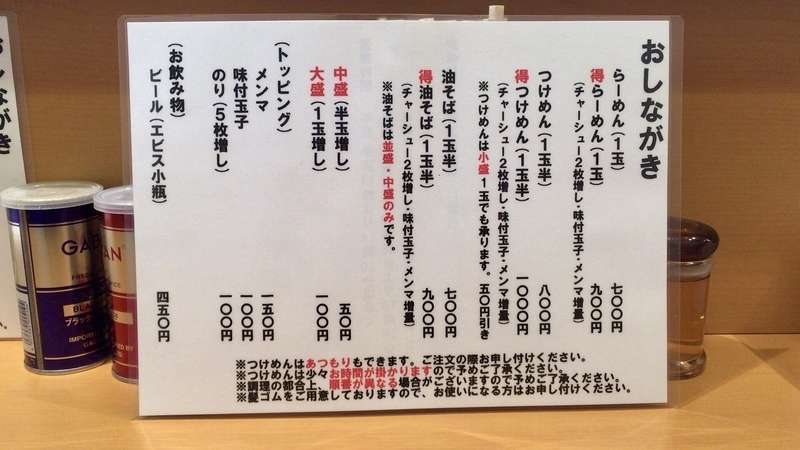 おしながき
らーめん（1玉） 七〇〇円
得らーめん（1玉） 九〇〇円
（チャーシュー2枚増し・味付玉子・メンマ増量）
つけめん（1玉半） 八〇〇円
得つけめん（1玉半） 一〇〇〇円
（チャーシュー2枚増し・味付玉子・メンマ増量）
※つけめんは小盛1玉でも承ります。 五〇円引き
油そば（1玉半） 七〇〇円
得油そば（1玉半） 九〇〇円
（チャーシュー2枚増し・味付玉子・メンマ増量）
※油そばは並盛・中盛のみです。
中盛（半玉増し） 五〇円
大盛（1玉増し） 一〇〇円
（トッピング）
メンマ 一五〇円
味付玉子 一〇〇円
のり（5枚増し） 一〇〇円
（お飲み物）
ビール（エビス小瓶） 四五〇円
※つけめんはあつもりもできます。ご注文の際お申し付けください。
※つけめんは少々お時間が掛かりますので予めご了承ください。
※調理の都合上、順番が異なる場合がございますので予めご了承ください。
※髪ゴムをご用意しておりますので、お使いになる方はお申し付けください。
ながき
GA
BLA
ブラック
IMPOR
AN